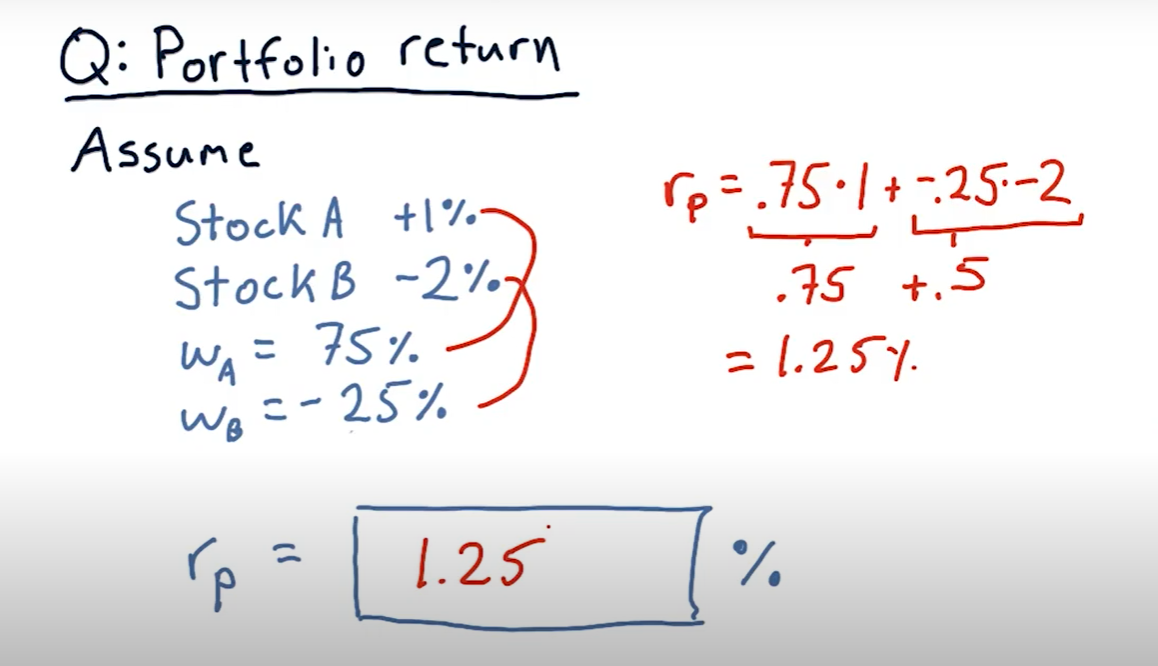 Q: Portfolio return
Assume
Stock A +1%
Stock B -2%
wA = 75%
wB = - 25%
rp = .75·1 + -.25·-2
.75 +.5
= 1.25%
rp = 1.25 %